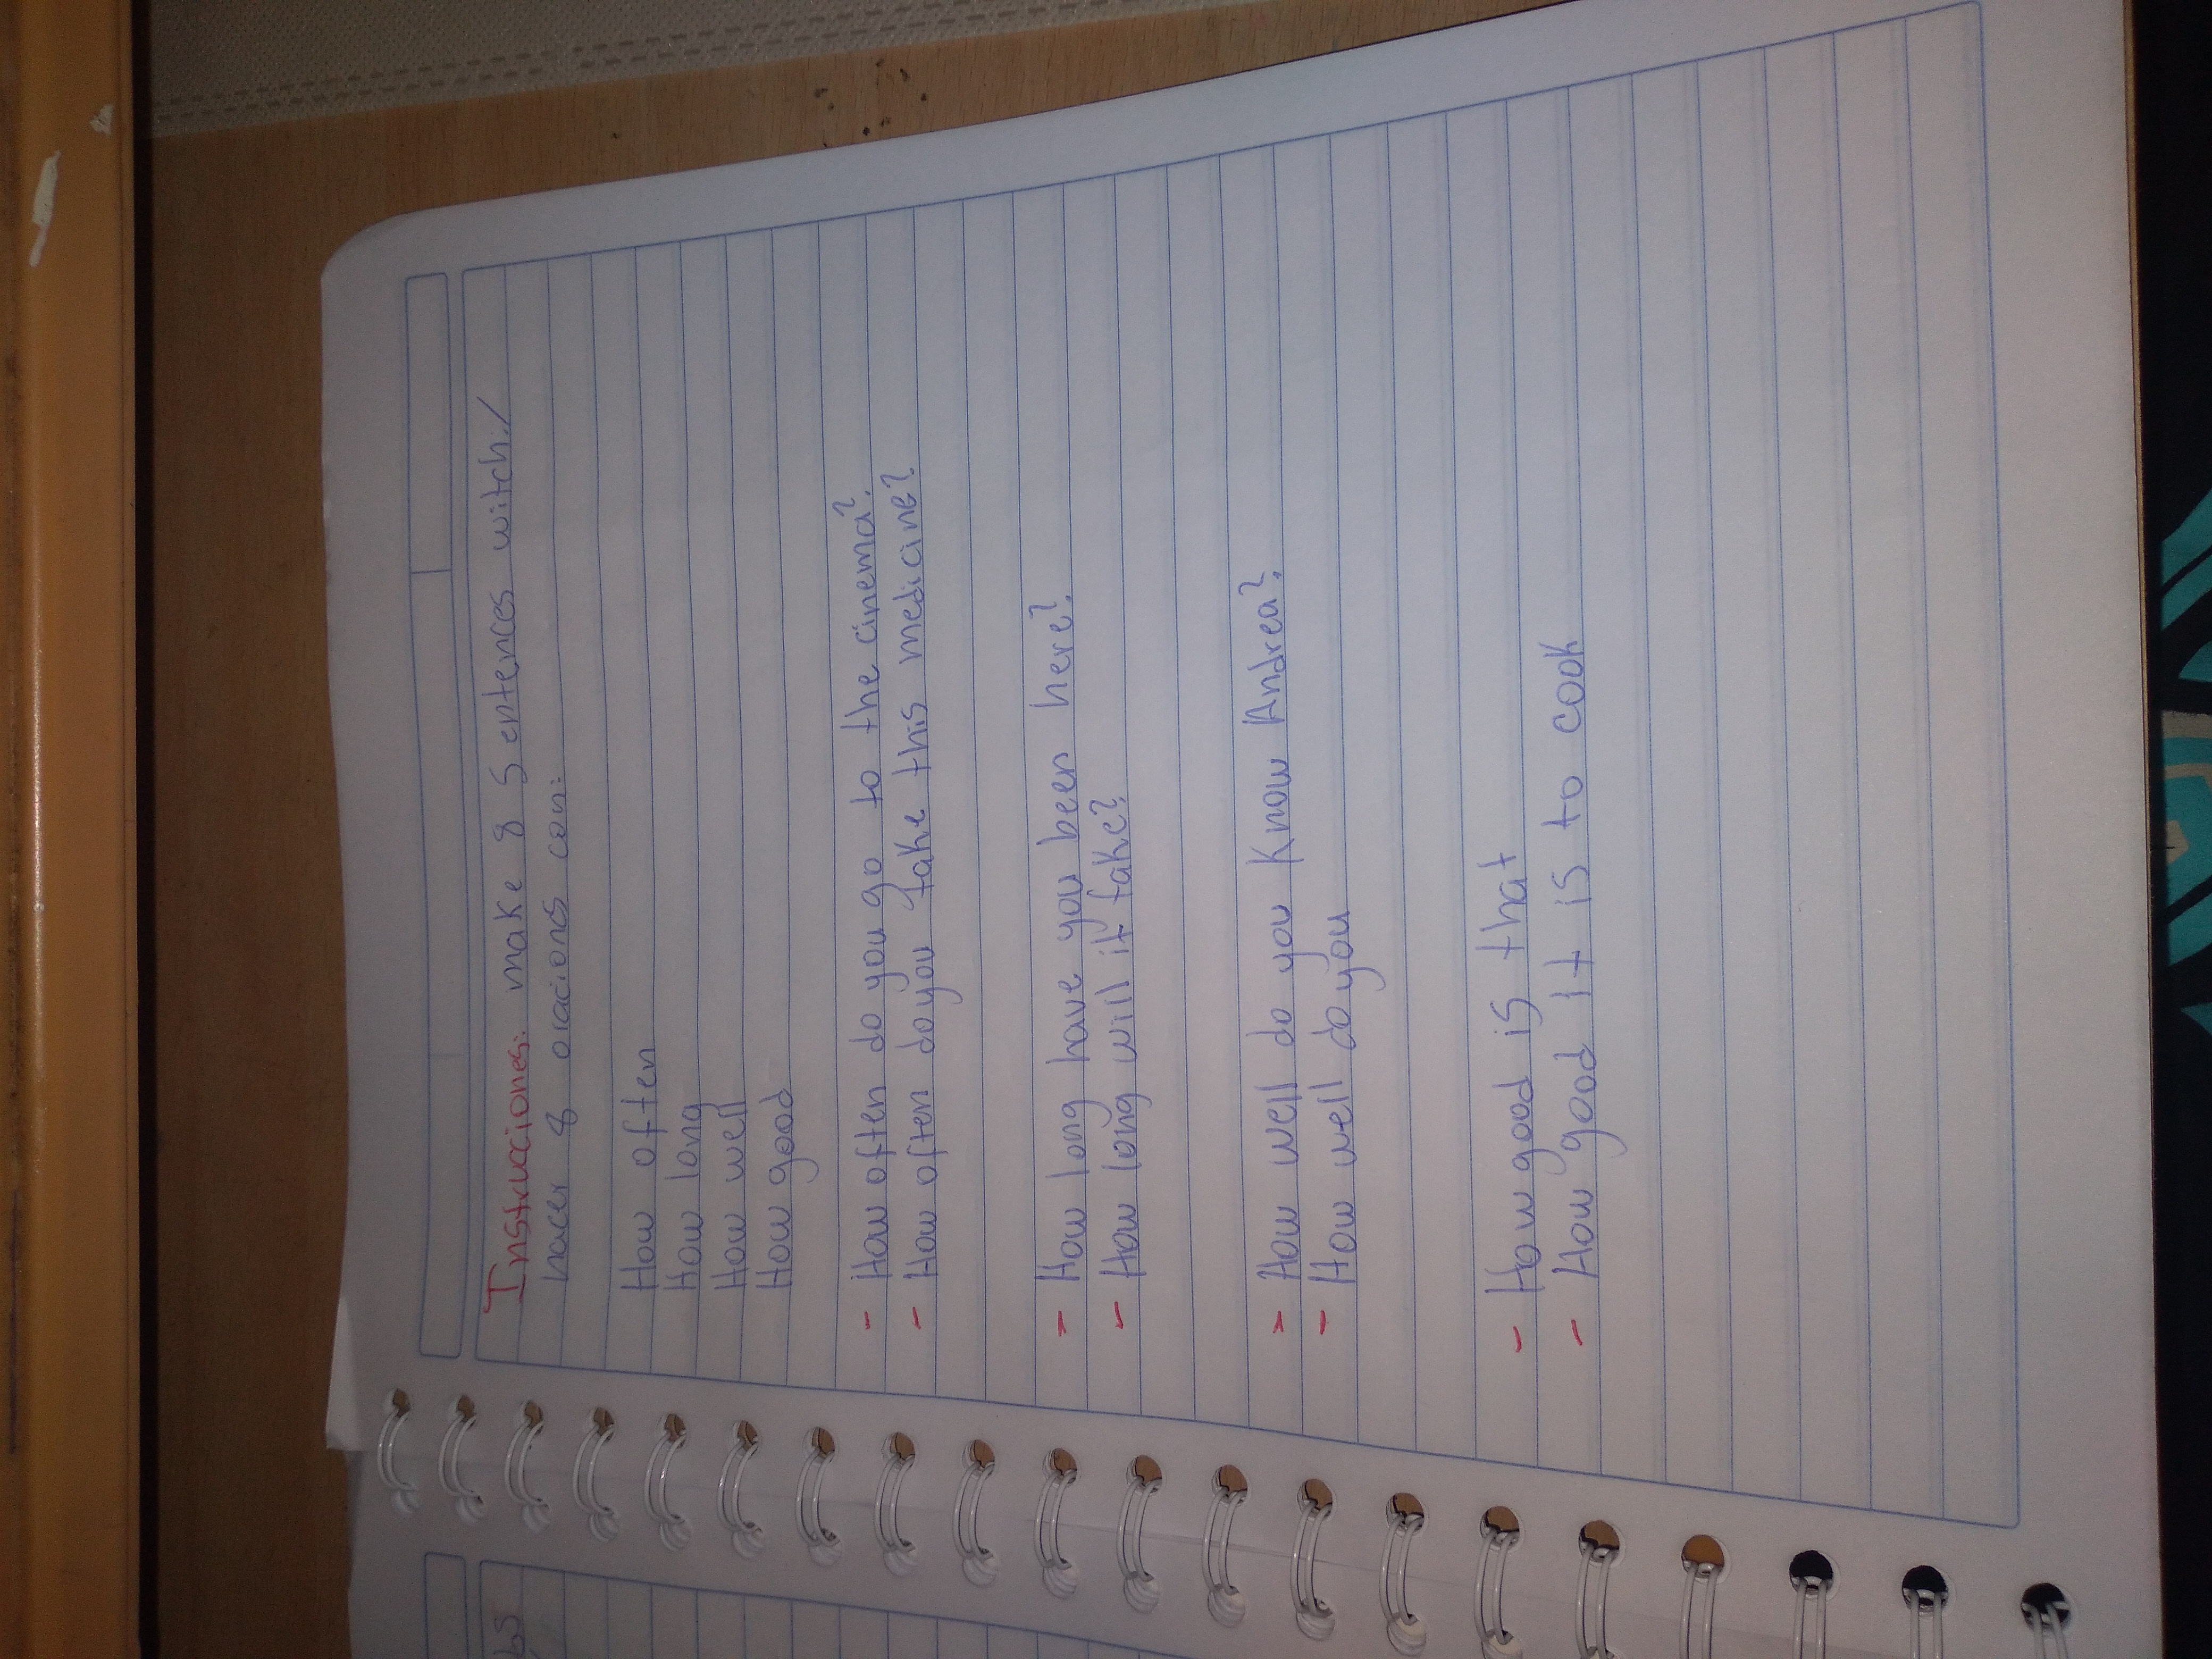 Instrucciones: make 8 Sentences witch:/
hacer 8 oraciones con:
How often
How long
How well
How good
- How often do you go to the cinema?
- How often do you take this medicine?
- How long have you been here?
- How long will it take?
- How well do you Know Andrea?
- How well do you
- How good is that
- How good It is to cook